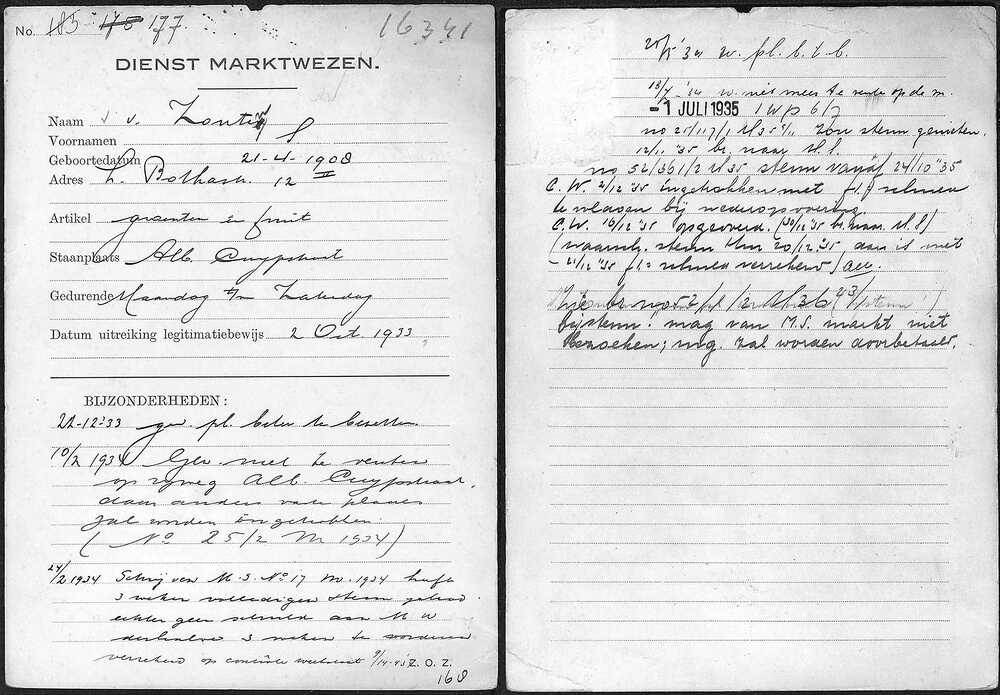 No. 185 178 177
16341
DIENST MARKTWEZEN.
Naam v. Zouti
Voornamen S
Geboortedatum 21-4-1908
Adres L. Bothastr. 12 II
Artikel groenten en fruit
Staanplaats Alb. Cuypstraat
Gedurende Maandag t/m Zaterdag
Datum uitreiking legitimatiebewijs 2 Oct 1933
BIJZONDERHEDEN:
22-12-'33 gew. pl. beter te bezetten
10/2 1934 Gew. niet te venten
op rijweg Alb. Cuypstraat,
daar anders vaste plaats
zal worden ingetrokken.
(No 25/2 M 1934)
24/2 1934 Schrijven M.S. No 17 M. 1934 heeft
3 weken volledigen steun gehad
echter geen schuld aan M W
derhalve 3 weken te worden
verrekend op contrôle
Z. O. Z.
168
25/5 '34 w. pl. b. t. b.
13/7 '34 w. niet meer te venten op de m.
-1 JULI 1935 1 W P 6/7
no 25/117/1 M 35 zou steun genieten.
12/11 '35 br. naar M.S.
no 52/361/2 M 35 steun vanaf 24/10 '35
C. W. 2/12 '35 ingetrokken met f 1.- schuld
te vragen bij wederopvoering.
C. W. 16/12 '35 opgevoerd. (30/12 '35 br. naar M.S)
(waarsch. steun t/m 20/12 '35, dan is met
21/12 '35 f 1.- schuld verrekend)
bijsteun: mag van M.S. markt niet
bezoeken; mg. zal worden doorbetaald.